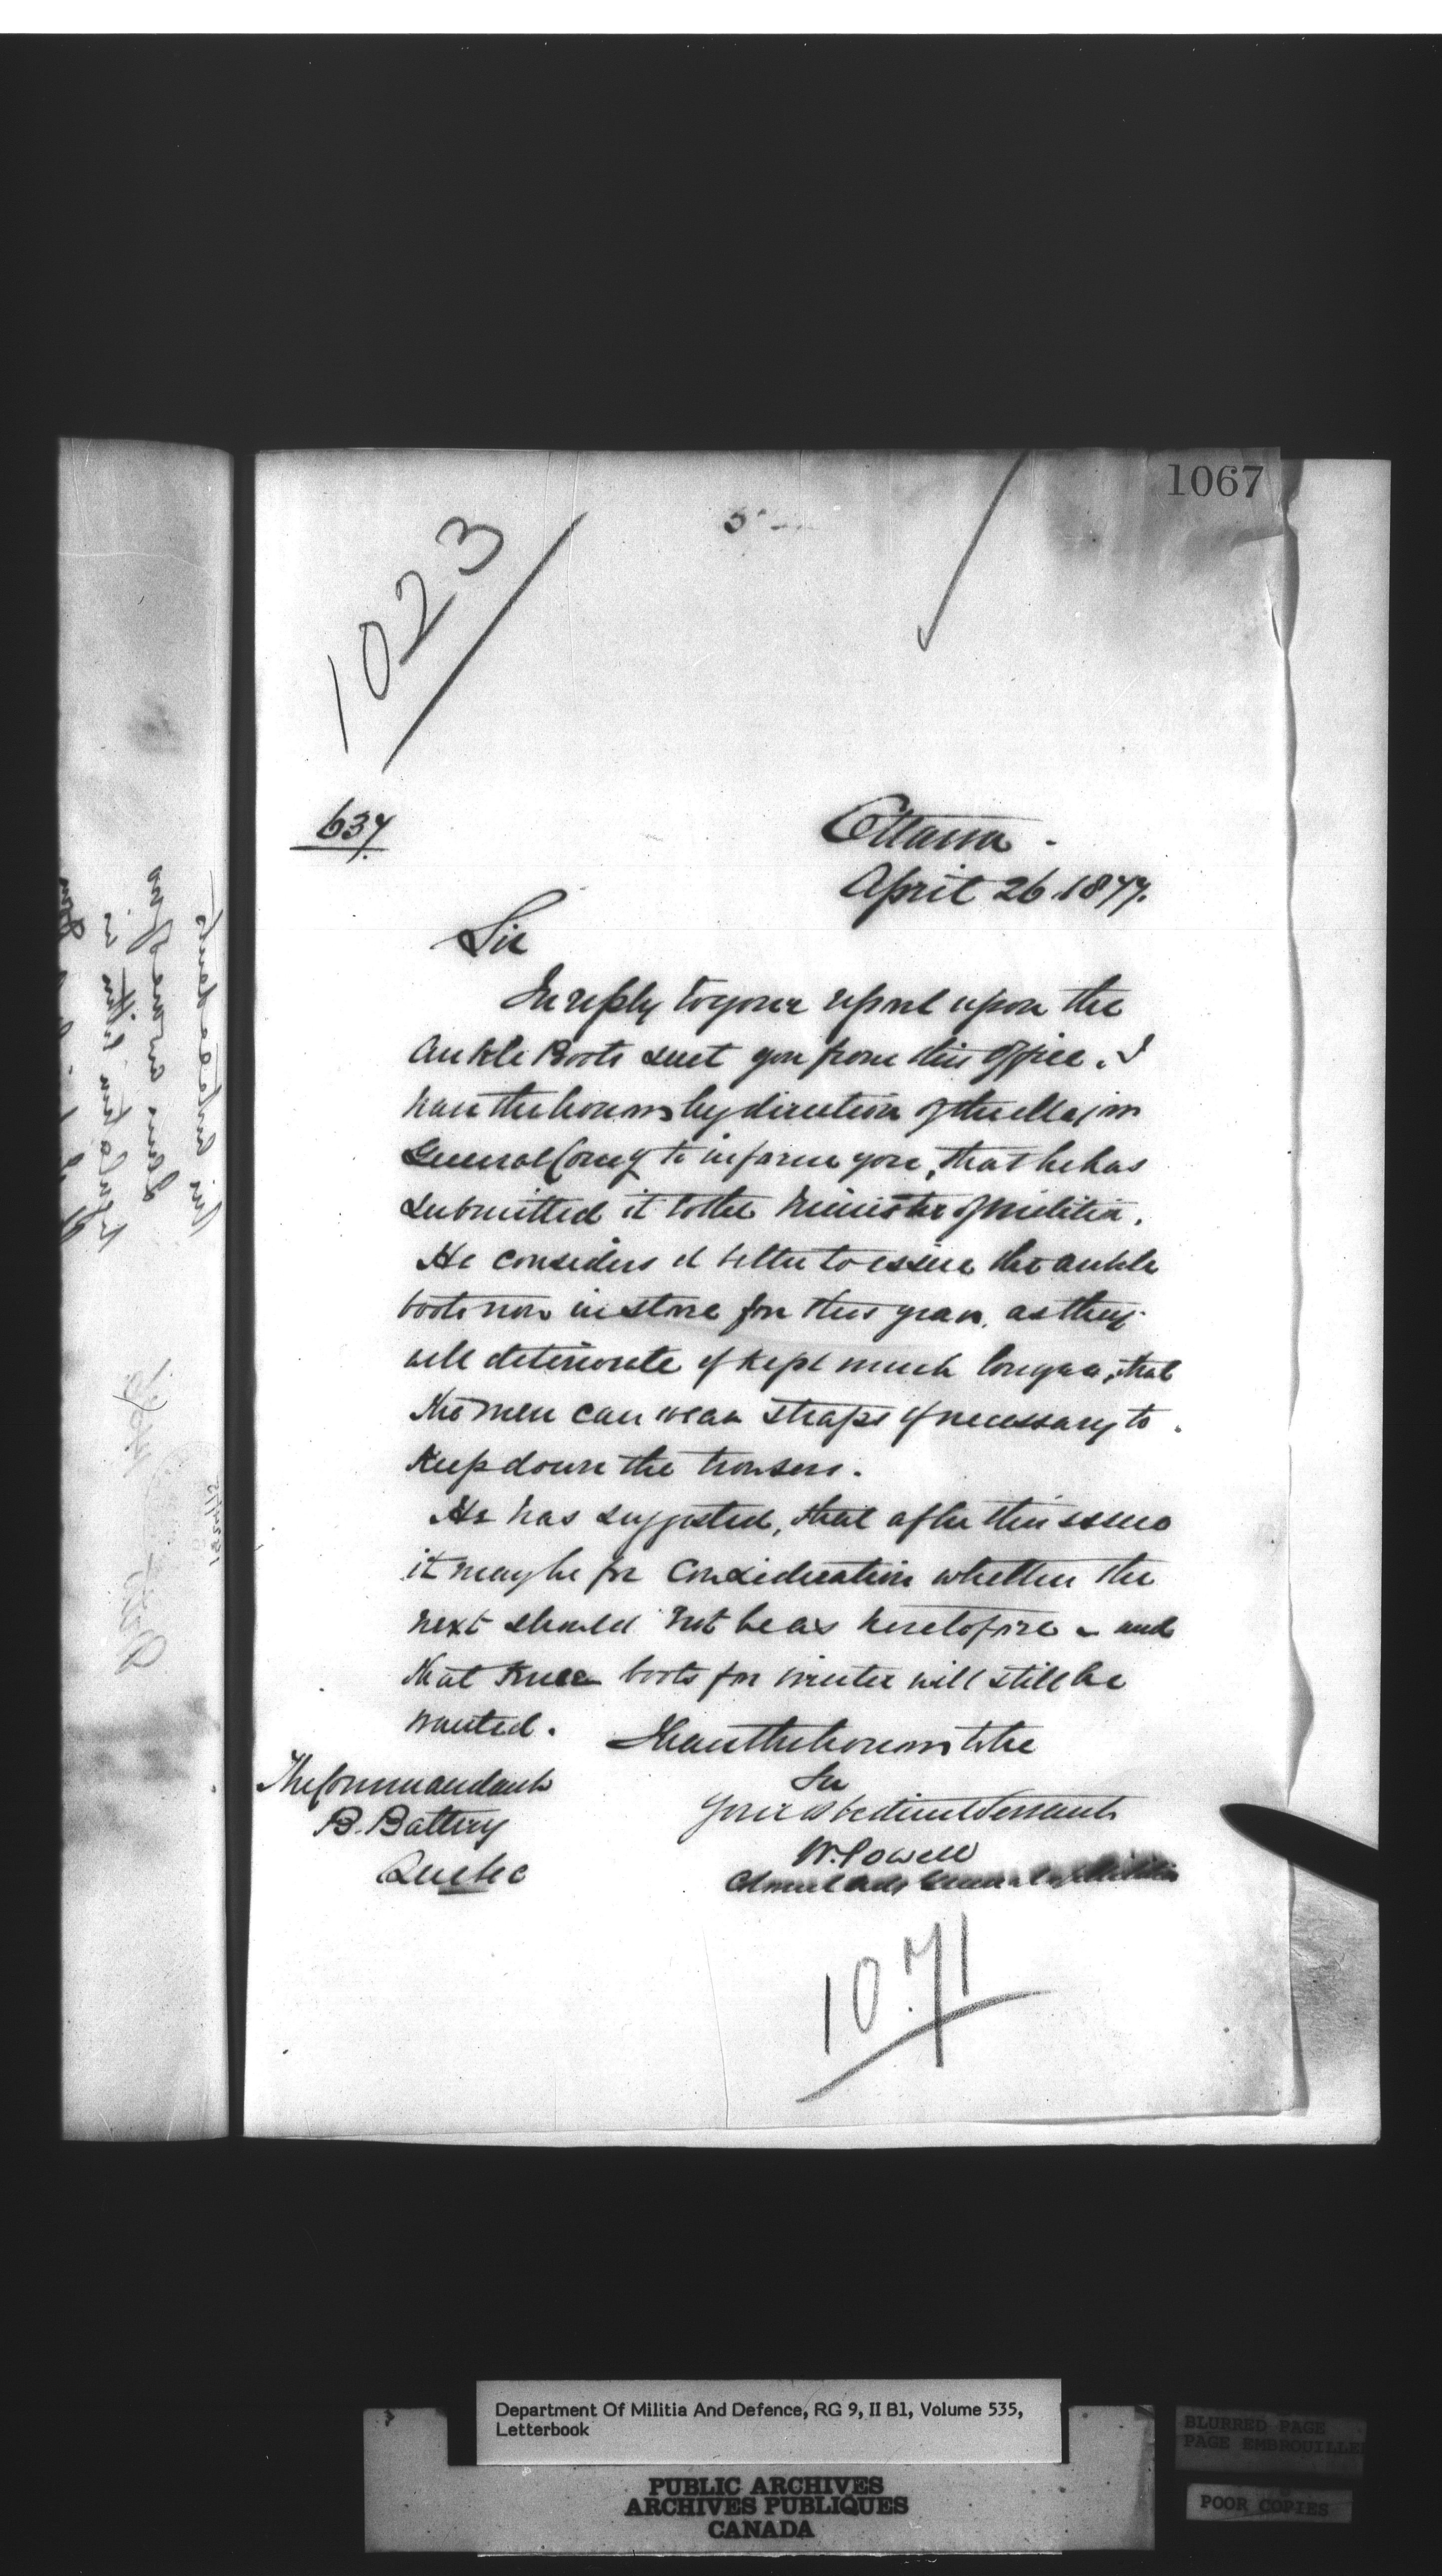 1067
1023
637.
Ottawa.
April 26. 1877.
Sir
In reply to your report upon the
Ankle Boots sent you from this office. I
have the honor by direction of the Major
General Comg to inform you, that he has
submitted it to the Minister of Militia.
He considers it better to issue the ankle
boots now in store for this year, as they
will deteriorate if kept much longer, that
the men can wear straps if necessary to
keep down the trousers.
He has suggested, that after this issue
it may be for consideration whether the
next should not be as heretofore - and
that knee boots for winter will still be
wanted.
I have the honor to be
Sir
Your obedient Servant
W. Powell
Colonel Adj General of Militia
The Commandant
B. Battery
Quebec
1071
Department Of Militia And Defence, RG 9, II B1, Volume 535,
Letterbook
PUBLIC ARCHIVES
ARCHIVES PUBLIQUES
CANADA
BLURRED PAGE
PAGE EMBROUILLEE
POOR COPIES